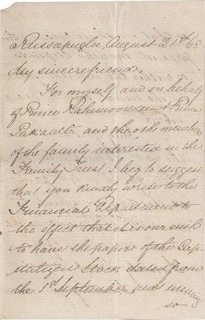 Russapugla August 21st 68
My sincere friend,
For myself and on behalf
of Prince Rahimooddeen & Prince
and the other members
of the family interested in the
Family Trust I beg to suggest
that you kindly write to the
Financial Department to
the effect that it is our wish
to have the papers of the
Stock dated from
the 1st September next
so